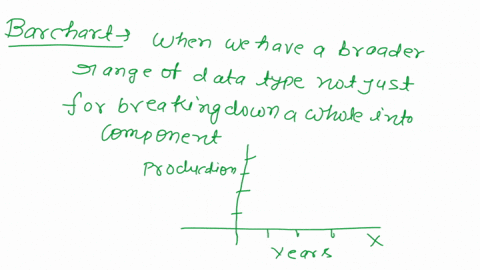 Barchart → When we have a broader
range of data type not just
for breaking down a whole into
component
Production
X
Years